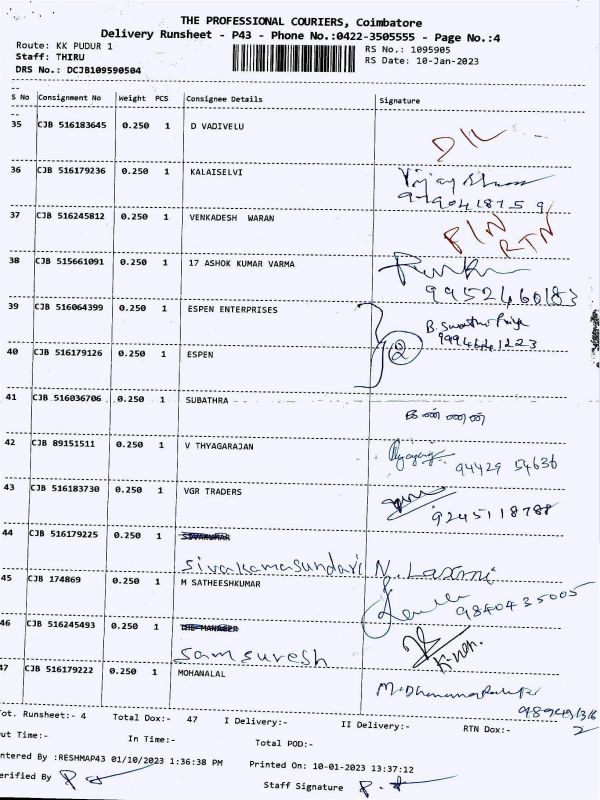 THE PROFESSIONAL COURIERS, Coimbatore
Delivery Runsheet - P43 - Phone No.:0422-3505555 - Page No.:4
Route: KK PUDUR 1
RS No.: 1095905
Staff: THIRU
RS Date: 10-Jan-2023
DRS No.: DCJB109590504
S No Consignment No Weight PCS Consignee Details Signature
35 CJB 516183645 0.250 1 D VADIVELU D/L
36 CJB 516179236 0.250 1 KALAISELVI
37 CJB 516245812 0.250 1 VENKADESH WARAN P/N RTN
38 CJB 515661091 0.250 1 17 ASHOK KUMAR VARMA
9952460183
39 CJB 516064399 0.250 1 ESPEN ENTERPRISES B. Swathi Priya
9994641223
2
40 CJB 516179126 0.250 1 ESPEN
41 CJB 516036706 0.250 1 SUBATHRA கண்ணன்
42 CJB 89151511 0.250 1 V THYAGARAJAN
94429 54636
43 CJB 516183730 0.250 1 VGR TRADERS
9245118788
44 CJB 516179225 0.250 1 SIVAKUMAR
Sivakamasundari N. Laxmi
45 CJB 174869 0.250 1 M SATHEESHKUMAR
9840435005
46 CJB 516245493 0.250 1 THE MANAGER
Sam suresh
47 CJB 516179222 0.250 1 MOHANALAL
Tot. Runsheet:- 4 Total Dox:- 47 I Delivery:- II Delivery:- RTN Dox:-
Out Time:- In Time:- Total POD:-
Entered By :RESHMAP43 01/10/2023 1:36:38 PM Printed On: 10-01-2023 13:37:12
Verified By Staff Signature